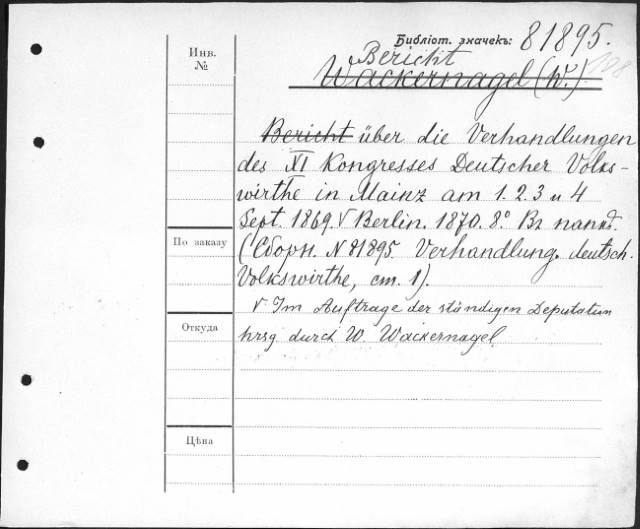 Библіот. значекъ: 81895.
Инв. №
Bericht
Wackernagel (W.)
Bericht über die Verhandlungen
des XI Kongresses Deutscher Volks-
wirthe in Mainz am 1. 2. 3 u 4
Sept. 1869. V Berlin. 1870. 8°. Въ папкѣ.
(Сборн. № 81895. Verhandlung. deutsch.
Volkswirthe, ст. 1).
V Im Auftrage der ständigen Deputation
hrsg durch W. Wackernagel
По заказу
Откуда
Цѣна